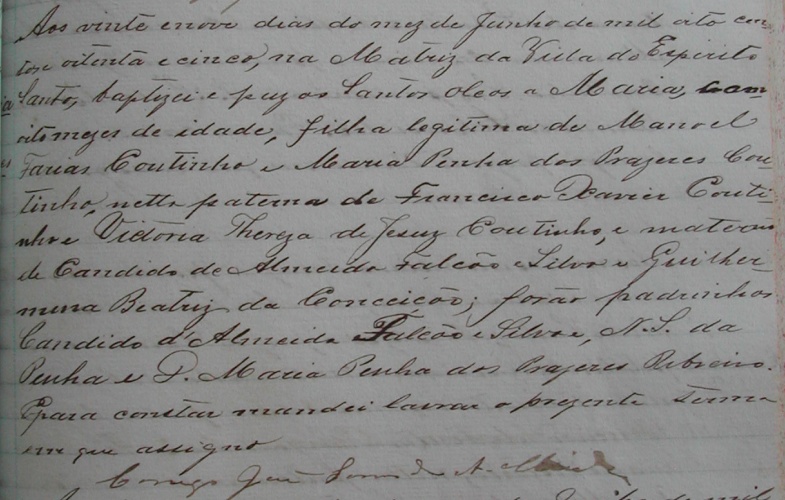 Aos vinte enove dias do mez de Junho de mil oito cen-
tos e oitenta e cinco, na Matriz da Villa do Espirito
Santo, baptizei e puz os Santos oleos a Maria, com
oito mezes de idade, filha legitima de Manoel
Farias Coutinho e Maria Penha dos Prazeres Cou-
tinho, netta paterna de Francisco Xavier Couti-
nho e Victoria Thereza de Jesuz Coutinho, e materna
de Candido de Almeida Falcão e Silva e Guilher-
mina Beatriz da Conceição; forão padrinhos
Candido d'Almeida Falcão e Silva e, N. S. da
Penha e D. Maria Penha dos Prazeres Ribeiro.
Epara constar mandei lavrar o prezente termo
em que assigno
Conego José
de mil